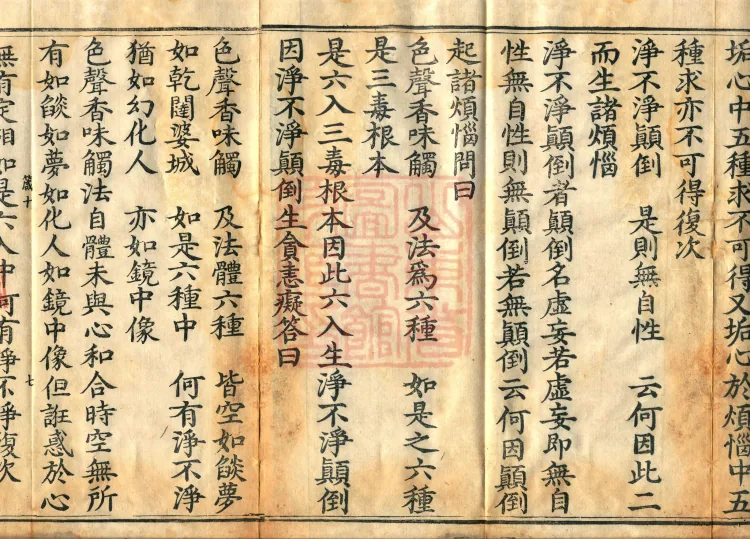 垢心中五種求不可得又垢心於煩惱中五
種求亦不可得復次
淨不淨顛倒　是則無自性　云何因此二
而生諸煩惱
淨不淨顛倒者顛倒名虛妄若虛妄即無自
性無自性則無顛倒若無顛倒云何因顛倒
起諸煩惱問曰
色聲香味觸　及法為六種　如是之六種
是三毒根本
是六入三毒根本因此六入生淨不淨顛倒
因淨不淨顛倒生貪恚癡答曰
色聲香味觸　及法體六種　皆空如燄夢
如乾闥婆城　如是六種中　何有淨不淨
猶如幻化人　亦如鏡中像
色聲香味觸法自體未與心和合時空無所
有如燄如夢如化人如鏡中像但誑惑於心
箴十　七
無有定相如是六入中何有淨不淨復次